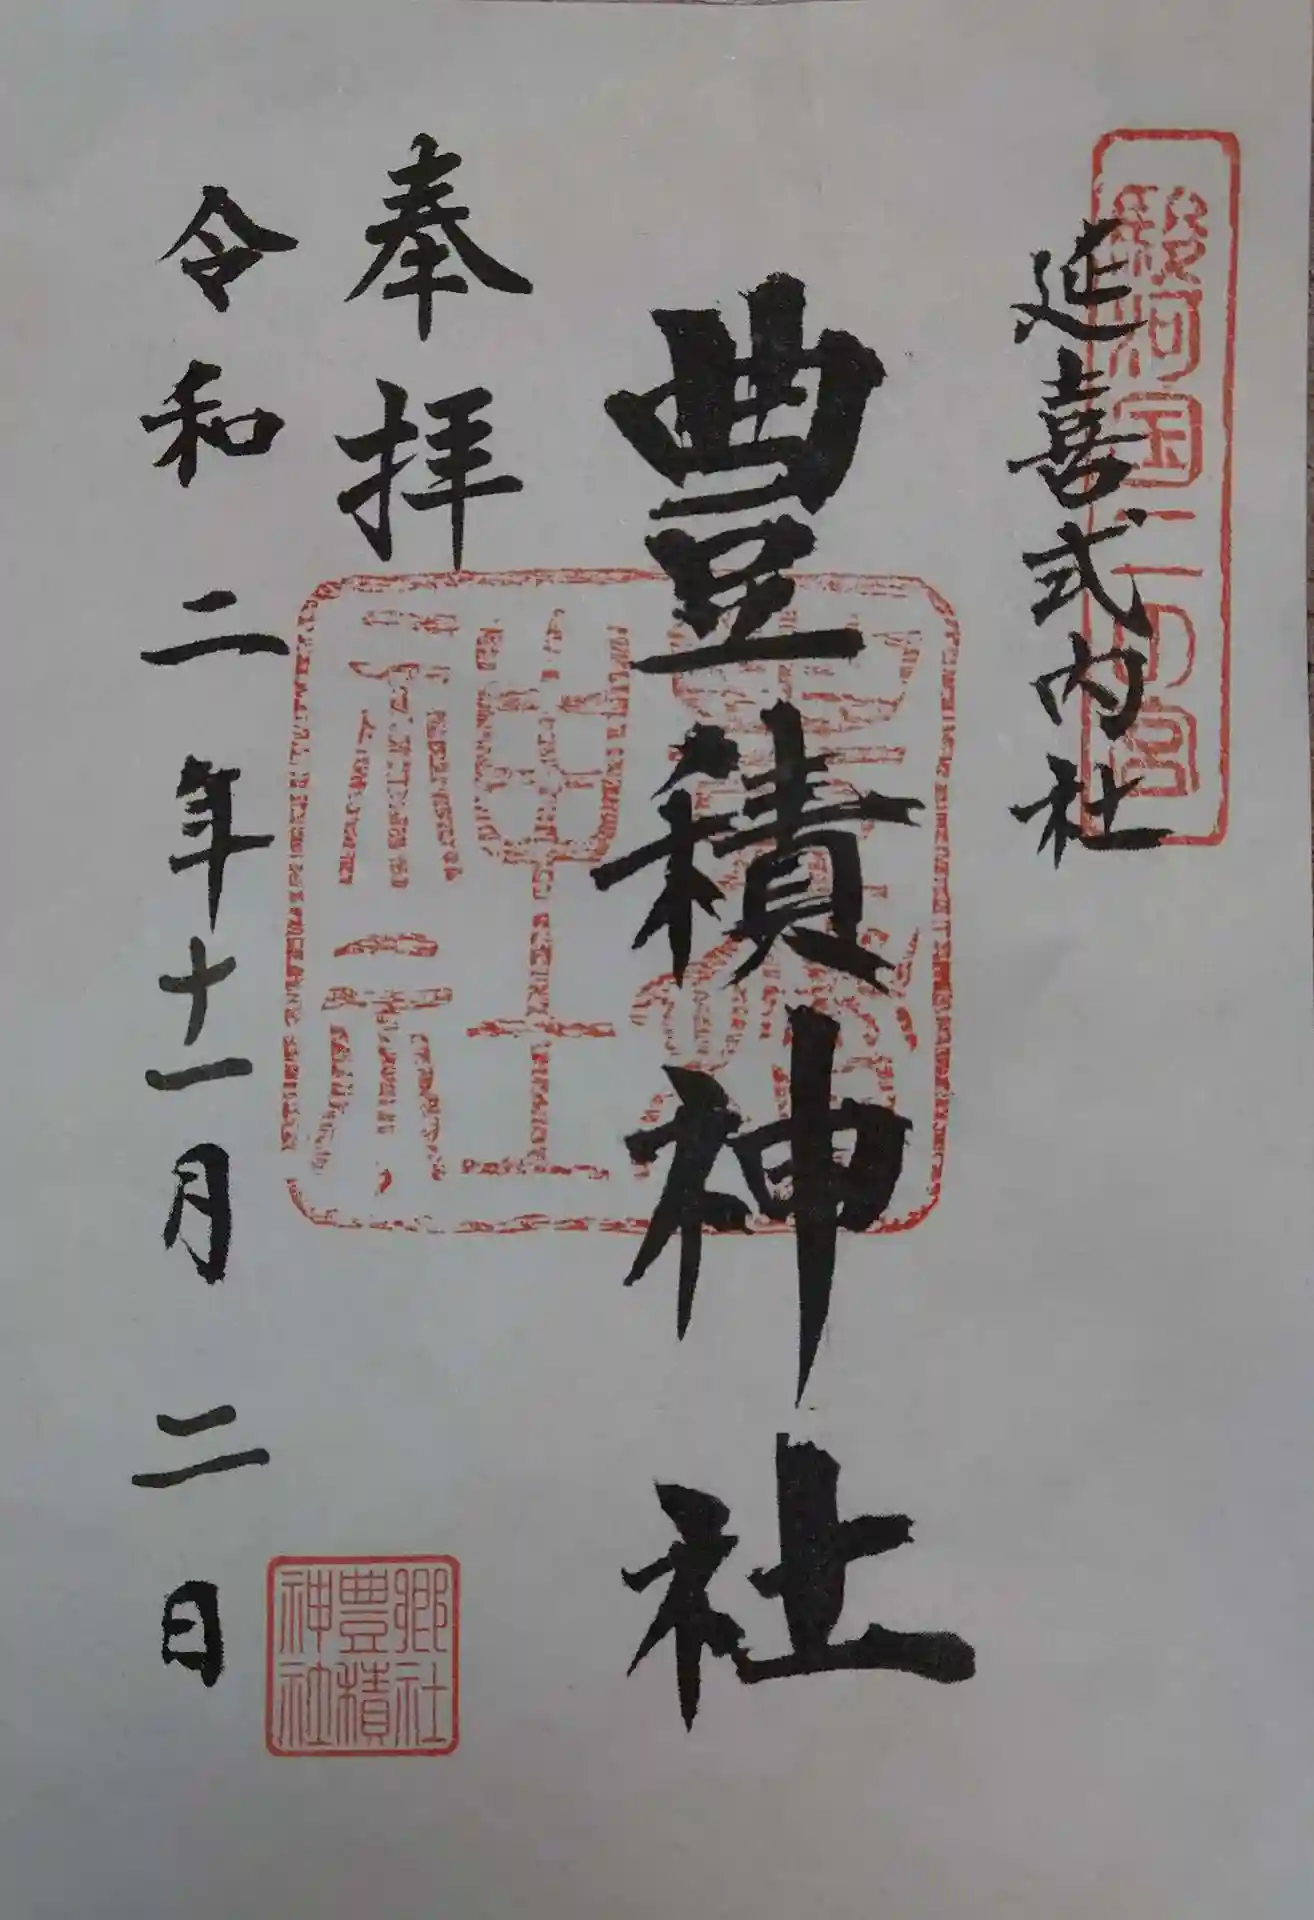 駿河国二の宮
延喜式内社
豊積神社
奉拝
令和二年十一月二日
郷社
豊積
神社